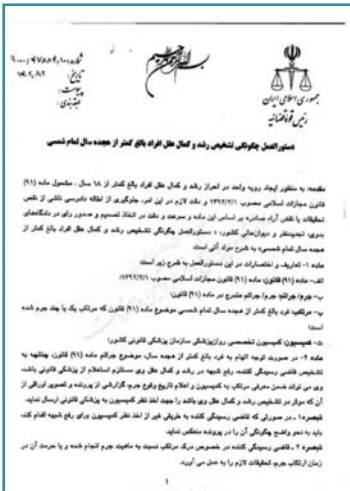 بسم الله الرحمن الرحیم
جمهوری اسلامی ایران
رئیس قوه قضائیه
شماره:
تاریخ:
پیوست:
طبقه‌بندی:
دستورالعمل چگونگی تشخیص رشد و کمال عقل افراد بالغ کمتر از هجده سال تمام شمسی
مقدمه: به منظور ایجاد رویه واحد در احراز رشد و کمال عقل افراد بالغ کمتر از ۱۸ سال، مشمول ماده (۹۱)
قانون مجازات اسلامی مصوب ۱۳۹۲/۲/۱ و دقت لازم در این امر، جلوگیری از اطاله دادرسی ناشی از نقص
تحقیقات یا نقض آراء صادره بر اساس این ماده و سرعت و دقت در اتخاذ تصمیم و صدور رای در دادگاههای
بدوی، تجدیدنظر و دیوان‌عالی کشور، « دستورالعمل چگونگی تشخیص رشد و کمال عقل افراد بالغ کمتر از
هجده سال تمام شمسی» به شرح مواد آتی است
ماده ۱- تعاریف و اختصارات در این دستورالعمل به شرح زیر است:
الف- ماده (۹۱) قانون: ماده (۹۱) قانون مجازات اسلامی مصوب ۱۳۹۲/۲/۱
ب- جرم/ جرائم: جرم/ جرائم مندرج در ماده (۹۱) قانون؛
پ- مرتکب: فرد بالغ کمتر از هجده سال تمام شمسی موضوع ماده (۹۱) قانون که مرتکب یک یا چند جرم شده
است؛
ت- کمیسیون: کمیسیون تخصصی روان‌پزشکی سازمان پزشکی قانونی کشور؛
ماده ۲- در صورت توجه اتهام به فرد بالغ کمتر از هجده سال، موضوع جرائم ماده (۹۱) قانون، چنانچه به
تشخیص قاضی رسیدگی کننده، رفع شبهه در رشد و کمال عقل وی مستلزم استعلام از پزشکی قانونی باشد،
وی می تواند ضمن معرفی مرتکب به کمیسیون و اعلام تاریخ وقوع جرم، گزارشی از پرونده و تصویر اوراقی از
آن که موثر در تشخیص رشد و کمال عقل وی باشد را جهت اخذ نظر کمیسیون به پزشکی قانونی ارسال نماید.
تبصره۱ – در صورتی که قاضی رسیدگی کننده به طریقی غیر از اخذ نظر کمیسیون برای رفع شبهه اقدام کند،
باید به نحو واضح چگونگی آن را در پرونده منعکس نماید.
تبصره ۲ – قاضی رسیدگی کننده در خصوص درک مرتکب نسبت به ماهیت جرم انجام شده و یا حرمت آن در
زمان ارتکاب جرم، تحقیقات لازم را به عمل می آورد.
۱